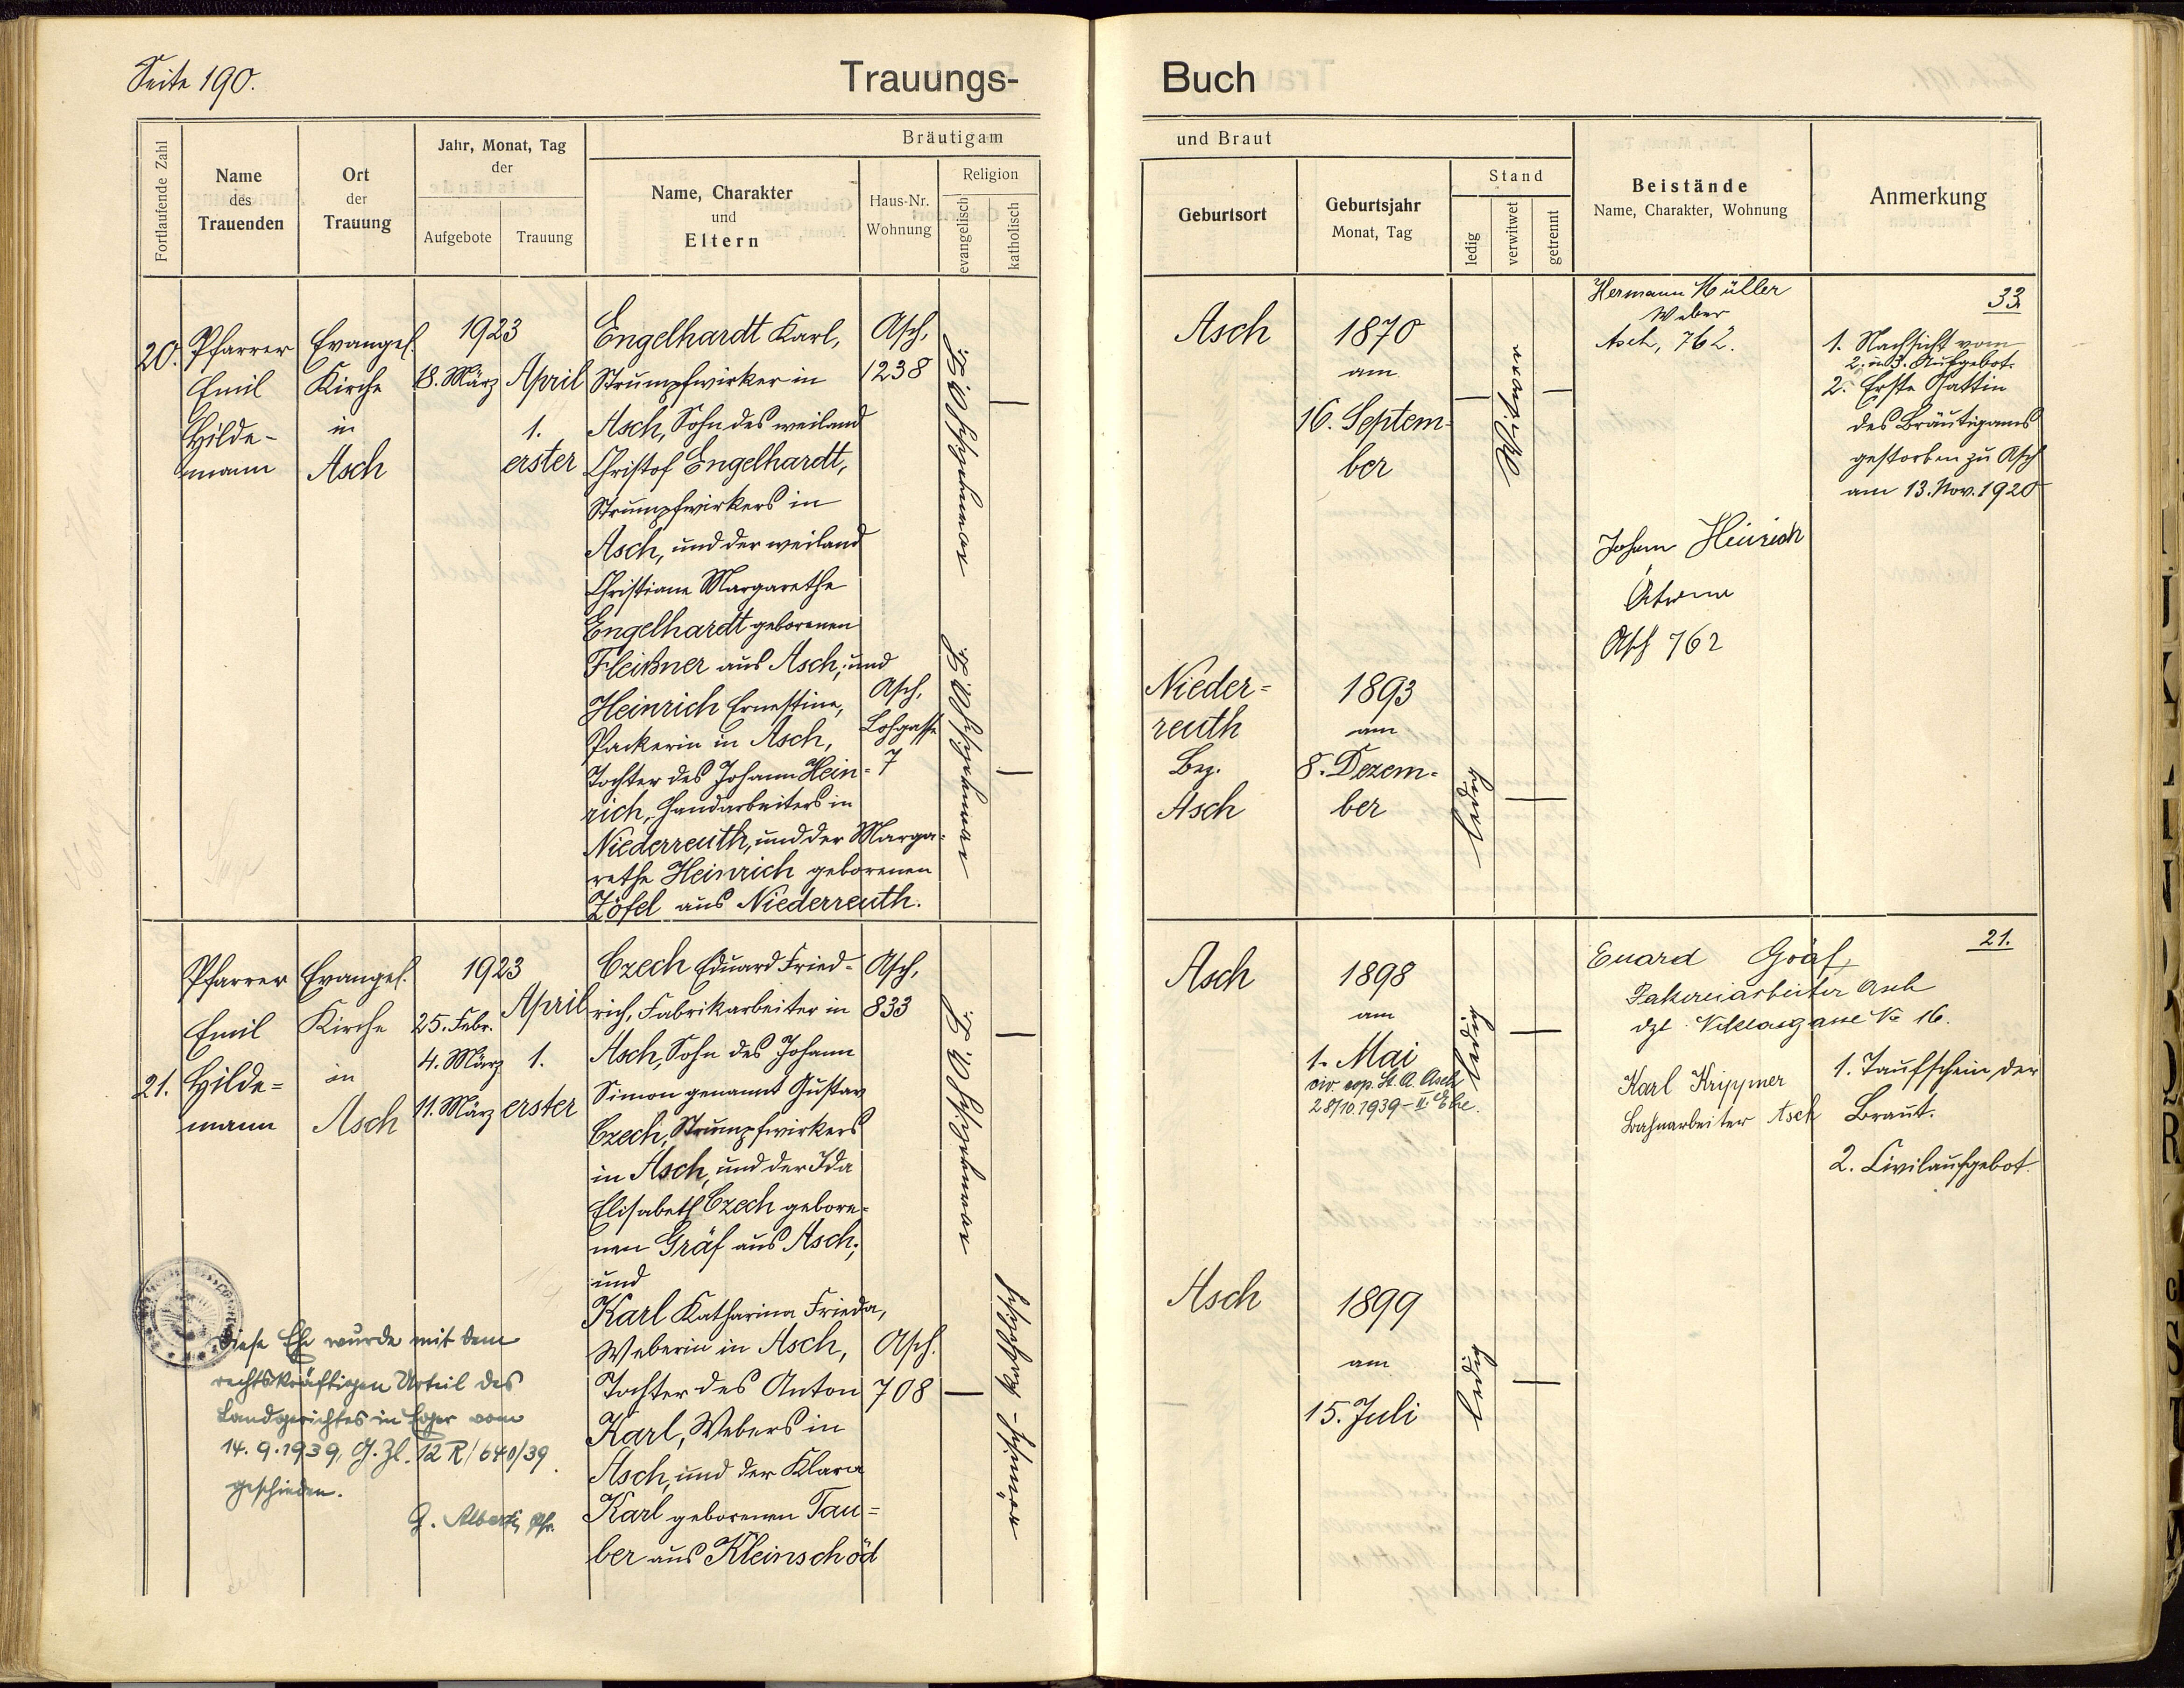 Seite 190.
Trauungs-
Buch
Fortlaufende Zahl
Name
des
Trauenden
Ort
der
Trauung
Jahr, Monat, Tag
der
Aufgebote
Trauung
Bräutigam
Name, Charakter
und
Eltern
Haus-Nr.
Wohnung
Religion
evangelisch
katholisch
und Braut
Geburtsort
Geburtsjahr
Monat, Tag
Stand
ledig
verwitwet
getrennt
Beistände
Name, Charakter, Wohnung
Anmerkung
20.
Pfarrer
Emil
Hilde-
mann
Evangel.
Kirche
in
Asch
1923
18. März
April
1.
erster
Engelhardt Karl,
Strumpfwirker in
Asch, Sohn des weiland
Christof Engelhardt,
Strumpfwirkers in
Asch, und der weiland
Christiane Margarethe
Engelhardt geborenen
Fleißner aus Asch; und
Heinrich Ernestine,
Packerin in Asch,
Tochter des Johann Hein-
rich, Handarbeiters in
Niederreuth, und der Marga-
rethe Heinrich geborenen
Zöfel aus Niederreuth.
Asch,
1238
Asch,
Lohgasse
7
Asch
1870
am
16. Septem-
ber
Witwer
Nieder-
reuth
Bez.
Asch
1893
am
8. Dezem-
ber
ledig
Hermann Müller
Weber
Asch, 762.
Johann Heinrich
Asch 762
33
1. Nachsicht vom
2. u. 3. Aufgebot.
2. Erste Gattin
des Bräutigams
gestorben zu Asch
am 13. Nov. 1920
21.
Pfarrer
Emil
Hilde-
mann
Evangel.
Kirche
in
Asch
1923
25. Febr.
4. März
11. März
April
1.
erster
Czech Eduard Fried-
rich, Fabrikarbeiter in
Asch, Sohn des Johann
Simon genannt Gustav
Czech, Strumpfwirkers
in Asch, und der Ida
Elisabeth Czech gebore-
nen Gräf aus Asch;
und
Karl Katharina Frieda,
Weberin in Asch,
Tochter des Anton
Karl, Webers in
Asch, und der Klara
Karl geborenen Tau-
ber aus Kleinschöd
Asch,
833
Asch.
708
römisch-katholisch
Asch
1898
am
1. Mai
civ. cop. St. A. Asch
28/10.1939 - II. Ehe.
ledig
Asch
1899
am
15. Juli
ledig
Euard Gräf,
Pakereiarbeiter Asch
dzt. Niklasgasse No 16.
Karl Krippner
Bahnarbeiter Asch
21.
1. Taufschein der
Braut.
2. Civilaufgebot.
Diese Ehe wurde mit dem
rechtskräftigen Urteil des
Landgerichtes in Eger vom
14. 9. 1939, G. Zl. 12 R/640/39
geschieden.
G. Alberti, Pfr.